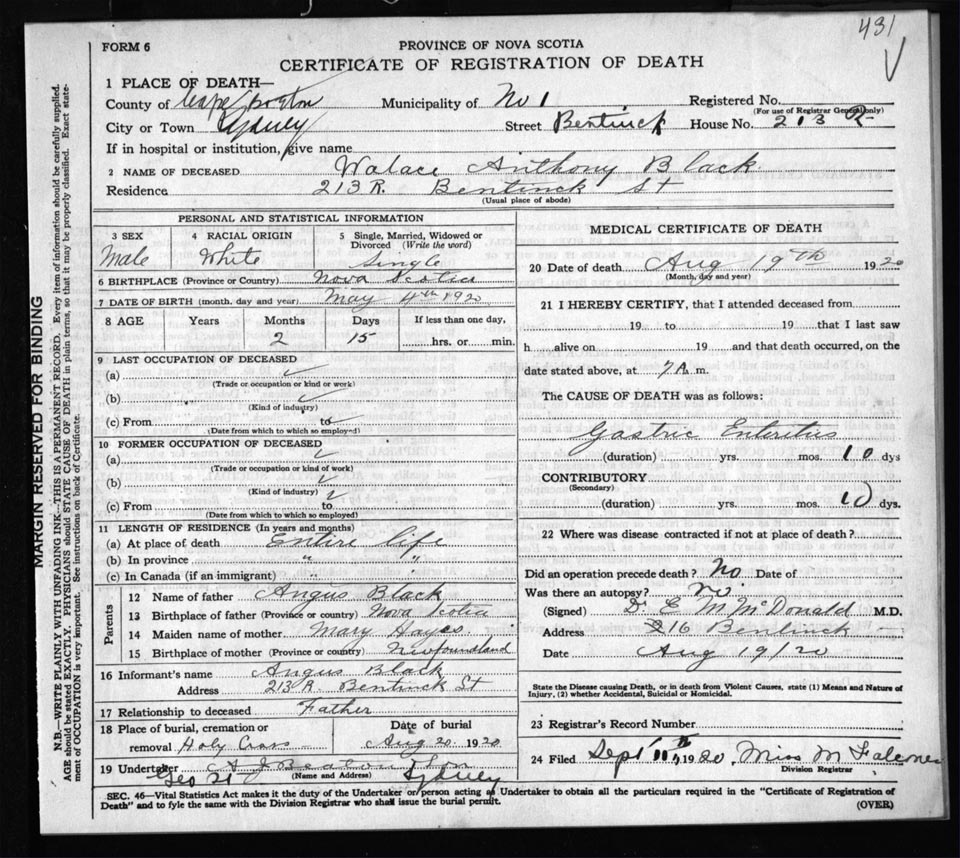 431
FORM 6
PROVINCE OF NOVA SCOTIA
CERTIFICATE OF REGISTRATION OF DEATH
1 PLACE OF DEATH—
County of Cape Breton Municipality of No 1 Registered No.
(For use of Registrar General only)
City or Town Sydney Street Bentinck House No. 213 R
If in hospital or institution, give name
2 NAME OF DECEASED Walace Anthony Black
Residence 213 R. Bentinck St
(Usual place of abode)
PERSONAL AND STATISTICAL INFORMATION
3 SEX 4 RACIAL ORIGIN 5 Single, Married, Widowed or Divorced (Write the word)
Male White Single
6 BIRTHPLACE (Province or Country) Nova Scotia
7 DATE OF BIRTH (month, day and year) May 4th 1920
8 AGE Years Months Days If less than one day,
2 15 hrs. or min.
9 LAST OCCUPATION OF DECEASED
(a)
(Trade or occupation or kind or work)
(b)
(Kind of industry)
(c) From to
(Date from which to which so employed)
10 FORMER OCCUPATION OF DECEASED
(a)
(Trade or occupation or kind of work)
(b)
(Kind of industry)
(c) From to
(Date from which to which so employed)
11 LENGTH OF RESIDENCE (In years and months)
(a) At place of death Entire life
(b) In province " "
(c) In Canada (if an immigrant) " "
Parents
12 Name of father Angus Black
13 Birthplace of father (Province or country) Nova Scotia
14 Maiden name of mother Mary Hayes
15 Birthplace of mother (Province or country) Newfoundland
16 Informant's name Angus Black
Address 213 R. Bentinck St
17 Relationship to deceased Father
18 Place of burial, cremation or removal Holy Cross
Date of burial Aug 20 1920
19 Undertaker A J Beaton
(Name and Address) Sydney
MEDICAL CERTIFICATE OF DEATH
20 Date of death Aug 19th 1920
(Month, day and year)
21 I HEREBY CERTIFY, that I attended deceased from
19 to 19 that I last saw
h alive on 19 and that death occurred, on the
date stated above, at 7 A. m.
The CAUSE OF DEATH was as follows:
Gastric Enteritus
(duration) yrs. mos. 10 dys
CONTRIBUTORY
(Secondary)
(duration) yrs. mos. 10 dys.
22 Where was disease contracted if not at place of death?
Did an operation precede death? No Date of
Was there an autopsy? no
(Signed) Dr E M McDonald M.D.
Address 216 Bentinck
Date Aug 19/20
State the Disease causing Death, or in death from Violent Causes, state (1) Means and Nature of
Injury, (2) whether Accidental, Suicidal or Homicidal.
23 Registrar's Record Number
24 Filed Sept 11th 1920. Miss M Falconer
Division Registrar
SEC. 46—Vital Statistics Act makes it the duty of the Undertaker or person acting as Undertaker to obtain all the particulars required in the "Certificate of Registration of
Death" and to fyle the same with the Division Registrar who shall issue the burial permit.
(OVER)
MARGIN RESERVED FOR BINDING
N.B.—WRITE PLAINLY WITH UNFADING INK—THIS IS A PERMANENT RECORD. Every item of information should be carefully supplied.
AGE should be stated EXACTLY. PHYSICIANS should STATE CAUSE OF DEATH in plain terms, so that it may be properly classified. Exact state-
ment of OCCUPATION is very important. See instructions on back of Certificate.